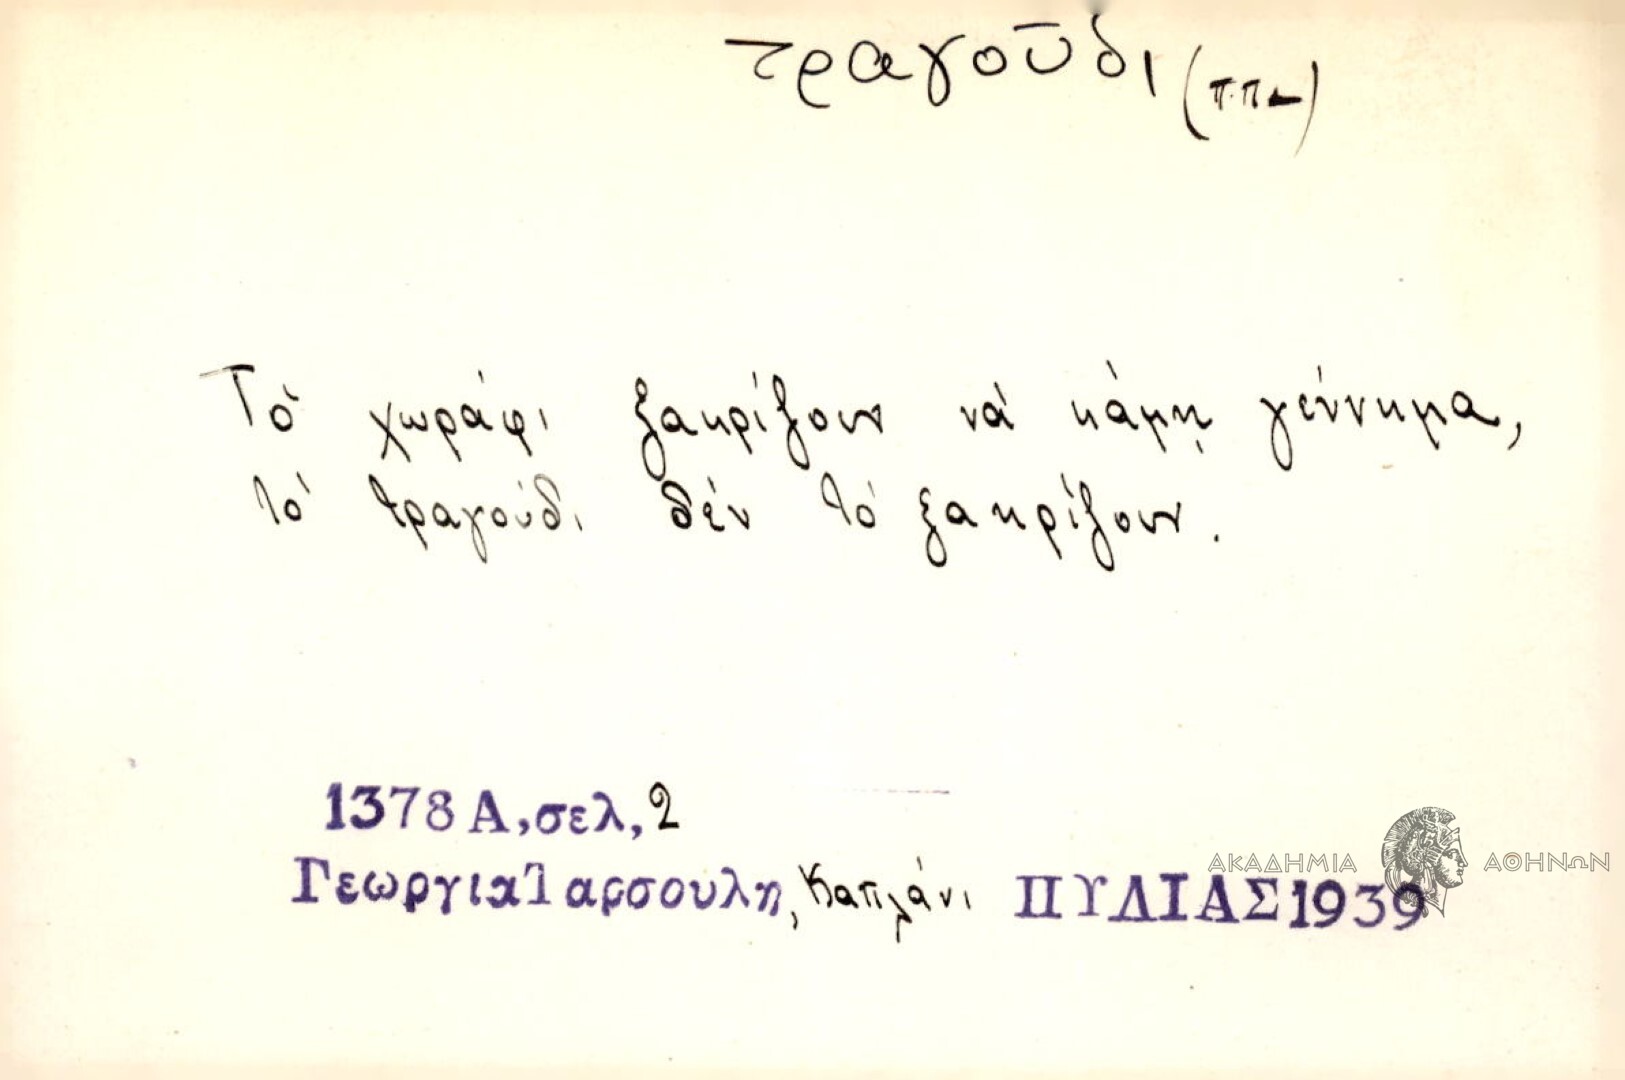 τραγοῦδι (π.π.)
Τὸ χωράφι ξακρίζουν νὰ κάμῃ γέννημα,
τὸ τραγούδι δὲν τὸ ξακρίζουν.
1378 Α, σελ, 2
Γεωργία Ταρσουλη, Καπλάνι ΠΥΛΙΑΣ 1939
ΑΚΑΔΗΜΙΑ ΑΘΗΝΩΝ